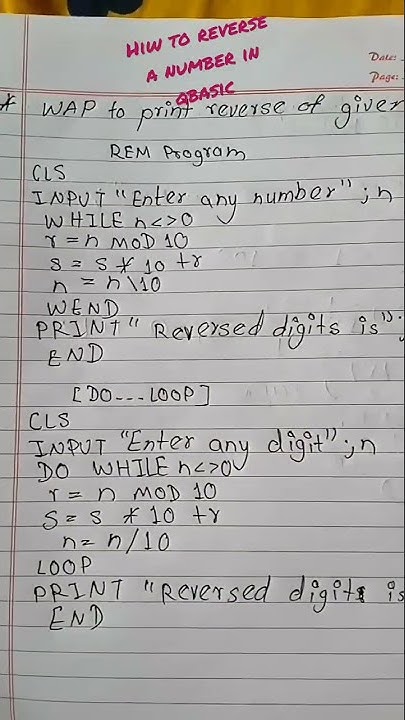 HIW TO REVERSE
A NUMBER IN
QBASIC
Date:
Page:
* WAP to print reverse of given
REM Program
CLS
INPUT "Enter any number" ; n
WHILE n<>0
r = n MOD 10
s = s * 10 + r
n = n \ 10
WEND
PRINT " Reversed digits is" ;
END
[DO---LOOP]
CLS
INPUT "Enter any digit" ; n
DO WHILE n<>0
r = n MOD 10
S = s * 10 + r
n = n / 10
LOOP
PRINT "Reversed digits is
END